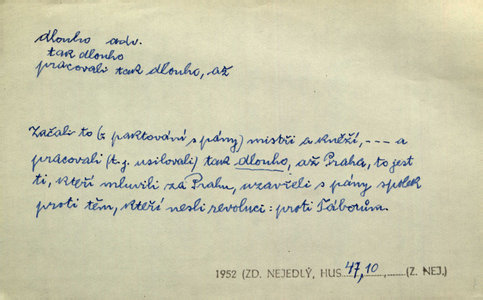 dlouho adv.
tak dlouho
pracovali tak dlouho, až
Začali to (z paktování s pány) mistři a kněží, --- a
pracovali (t.j. usilovali) tak dlouho, až Praha, to jest
ti, kteří mluvili za Prahu, uzavřeli s pány spolek
proti těm, kteří nesli revoluci: proti Táborům.
1952 (ZD. NEJEDLÝ, HUS 47,10 (Z. NEJ.)